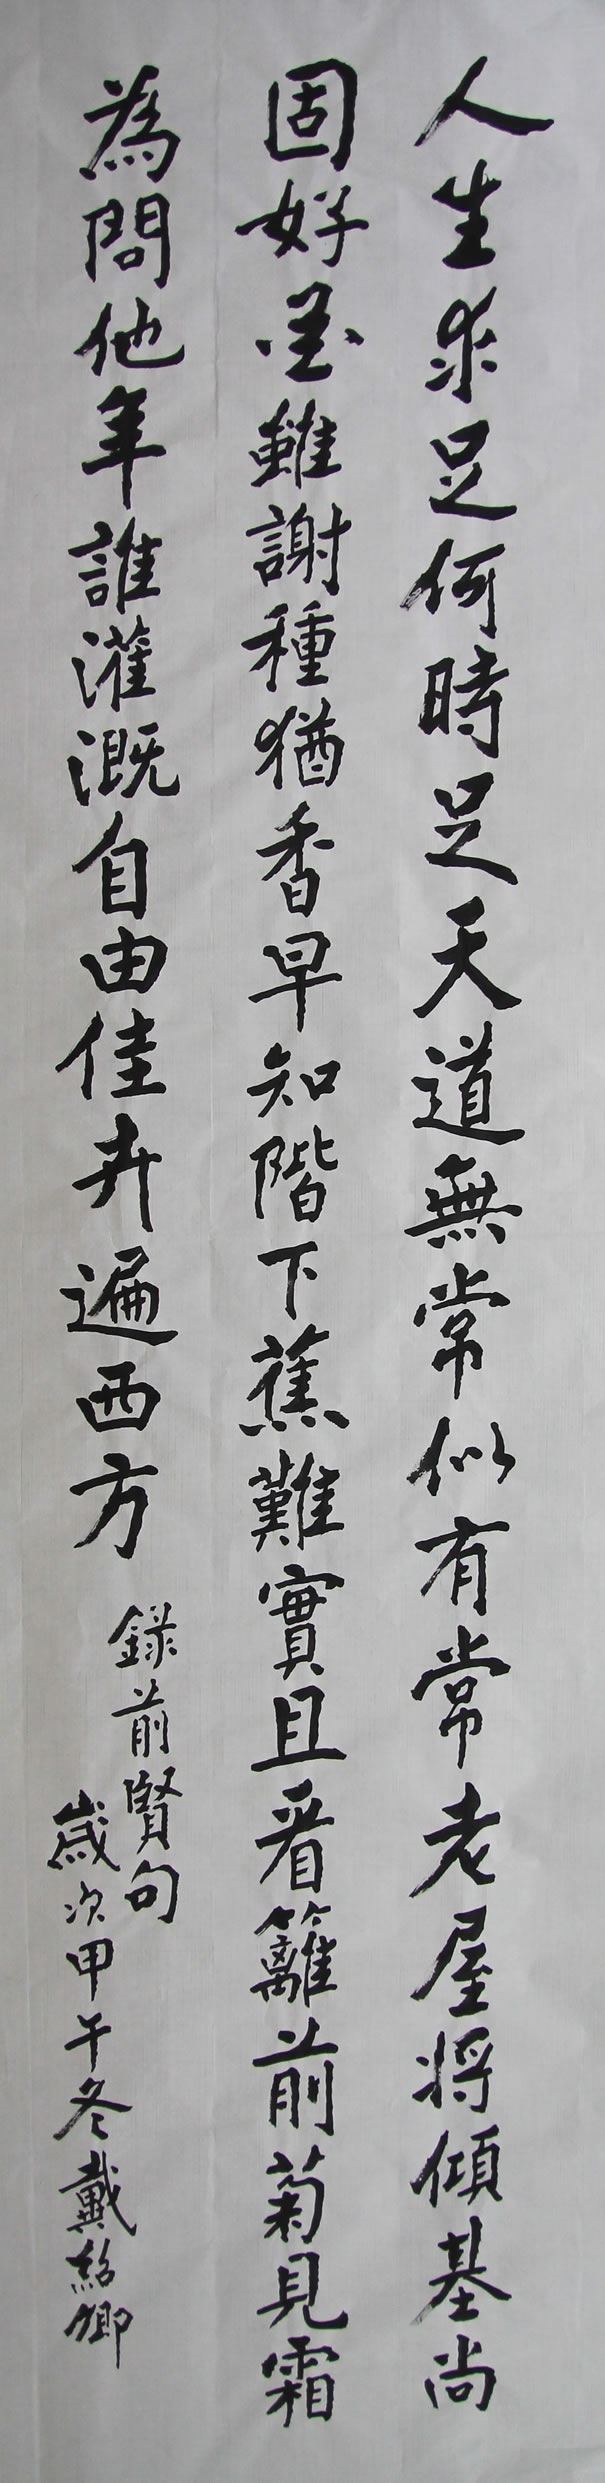 人生求足何時足天道無常似有常老屋將傾基尚
固好花雖謝種猶香早知階下蕉難實且看籬前菊見霜
為問他年誰灌溉自由佳卉遍西方
錄前賢句
歲次甲午冬戴紹卿